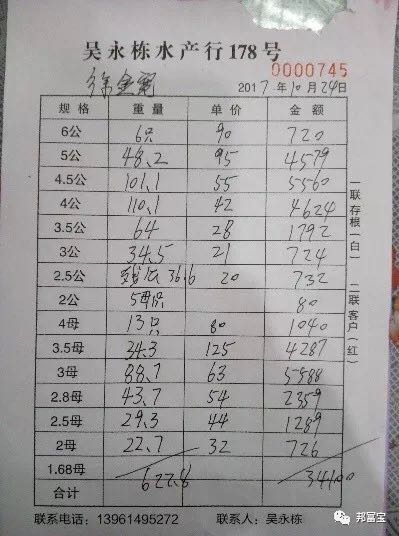 吴永栋水产行178号
0000745
2017年10月24日
规格 重量 单价 金额
6公 6只 90 720
5公 48.2 95 4579
4.5公 101.1 55 5560
4公 110.1 42 4624
3.5公 64 28 1792
3公 34.5 21 724
2.5公 36.6 20 732
2公 80
4母 13只 80 1040
3.5母 34.3 125 4287
3母 88.7 63 5588
2.8母 43.7 54 2359
2.5母 29.3 44 1289
2母 22.7 32 726
1.68母
合计 622.8 34100
一联存根(白) 二联客户(红)
联系电话:13961495272 联系人:吴永栋
邦富宝